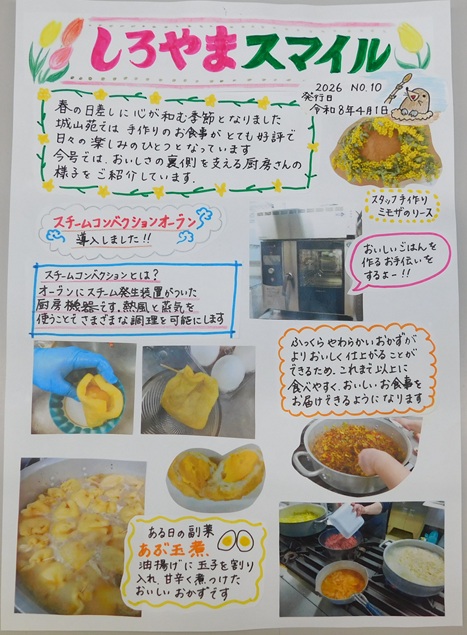 しろやまスマイル
2026 NO.10
発行日
令和8年4月1日
春の日差しに心が和む季節となりました
城山苑では 手作りのお食事が とても好評で
日々の楽しみのひとつとなっています
今号では、おいしさの裏側を支える厨房さんの
様子を ご紹介しています.
スタッフ手作り
ミモザのリース
スチームコンベクションオーブン
導入しました!!
おいしいごはんを
作る お手伝いを
するよー!!
スチームコンベクションとは?
オーブンにスチーム発生装置がついた
厨房機器です。熱風と蒸気を
使うことで、さまざまな調理を可能にします
ふっくらやわらかいおかずが
よりおいしく仕上がることが
できるため、これまで以上に
食べやすく、おいしいお食事を
お届けできるようになります
ある日の副菜
あぶ玉煮
油揚げに玉子を割り
入れ、甘辛く煮つけた
おいしい おかずです